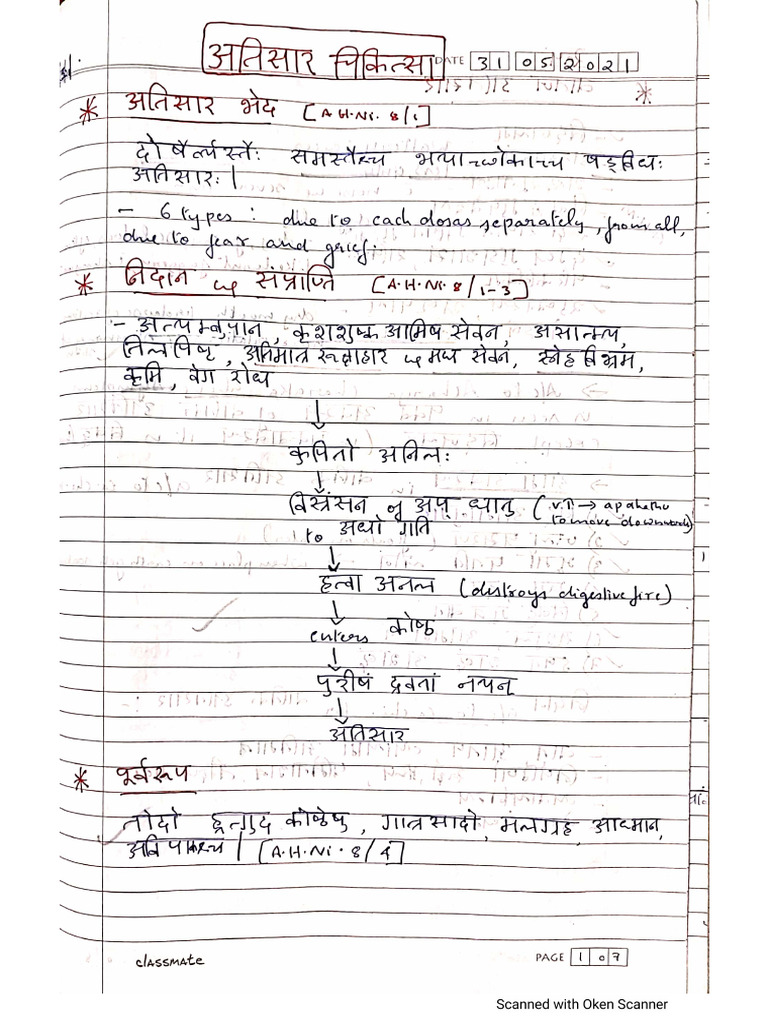 अतिसार चिकित्सा
DATE 31 05 2021
* अतिसार भेद [A.H.Ni. 8/1]
दोषैर्व्यस्तैः समस्तैश्च भयाच्छोकाच्च षड्विधः
अतिसारः।
- 6 types : due to each dosas separately, from all,
due to fear and grief.
* निदान संप्राप्ति [A.H.Ni. 8/1-3]
- अत्यम्बुपान, कृशशुष्क आमिष सेवन, असात्म्य,
तिलपिष्ट, अतिमात्र रूक्षाहार मद्य सेवन, स्नेह विभ्रम,
कृमि, वेग रोध
↓
कुपितो अनिलः
↓
विस्रंसन of अप् धातु (v.p. → apdhatu
to अधो गति to move downwards)
↓
हत्वा अनल (destroys digestive fire)
↓
enters कोष्ठ
↓
पुरीषं द्रवतां नयन्
↓
अतिसार
* पूर्वरूप
तोदो हृत्गुद कोष्ठेषु, गात्रसादो, मलग्रह, आध्मान,
अविपाकश्च। [A.H.Ni. 8/4]
classmate
PAGE 107
Scanned with Oken Scanner